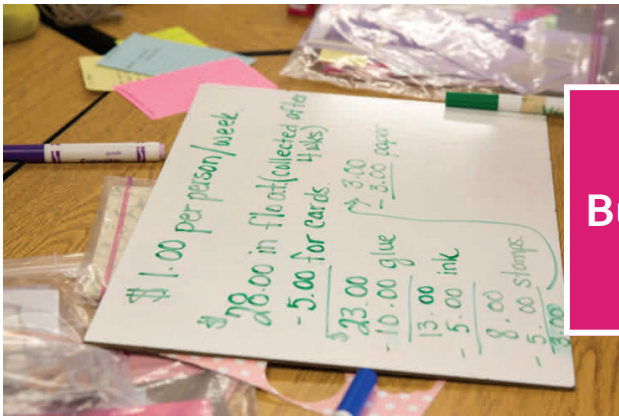 $1.00 per person/week
$28.00 in float (collected after
4 wks)
-5.00 for cards
$23.00
-10.00 glue
13.00
-5.00 ink
8.00
-5.00 stamps
3.00
3.00
-3.00 paper
Bu